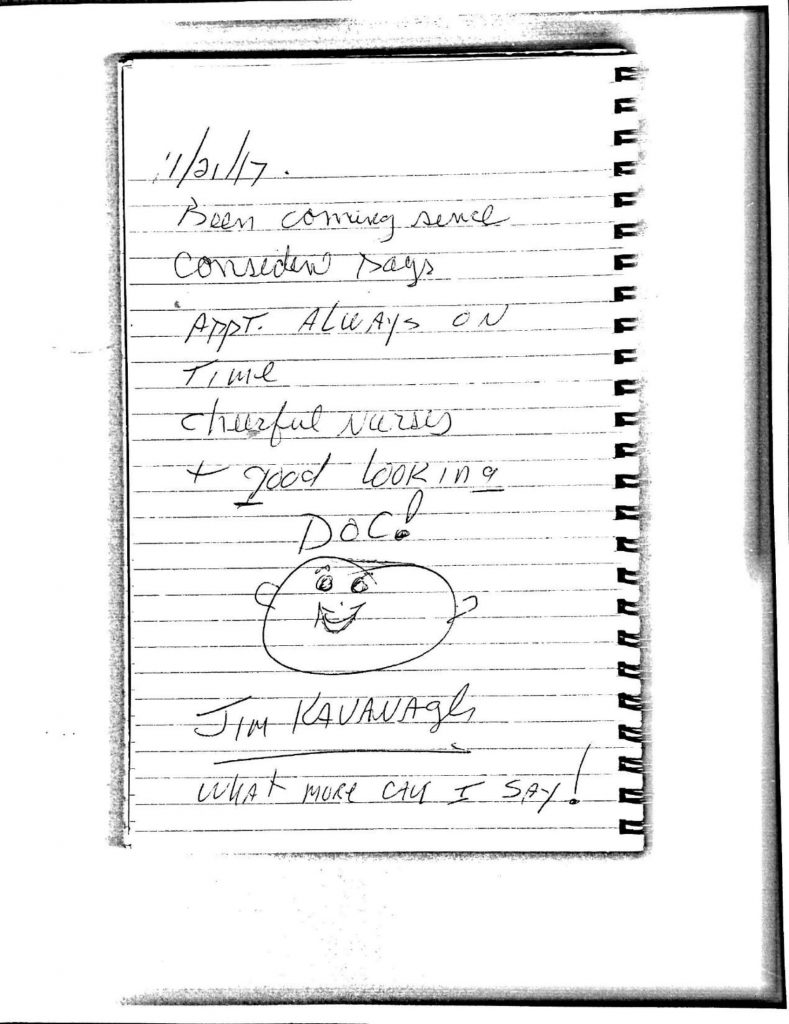 11/21/17.
Been coming sence
Days
Appt. Always on
Time
cheerful nurses
+ good looking
DOC!
Jim Kavanagh
What more can I say!